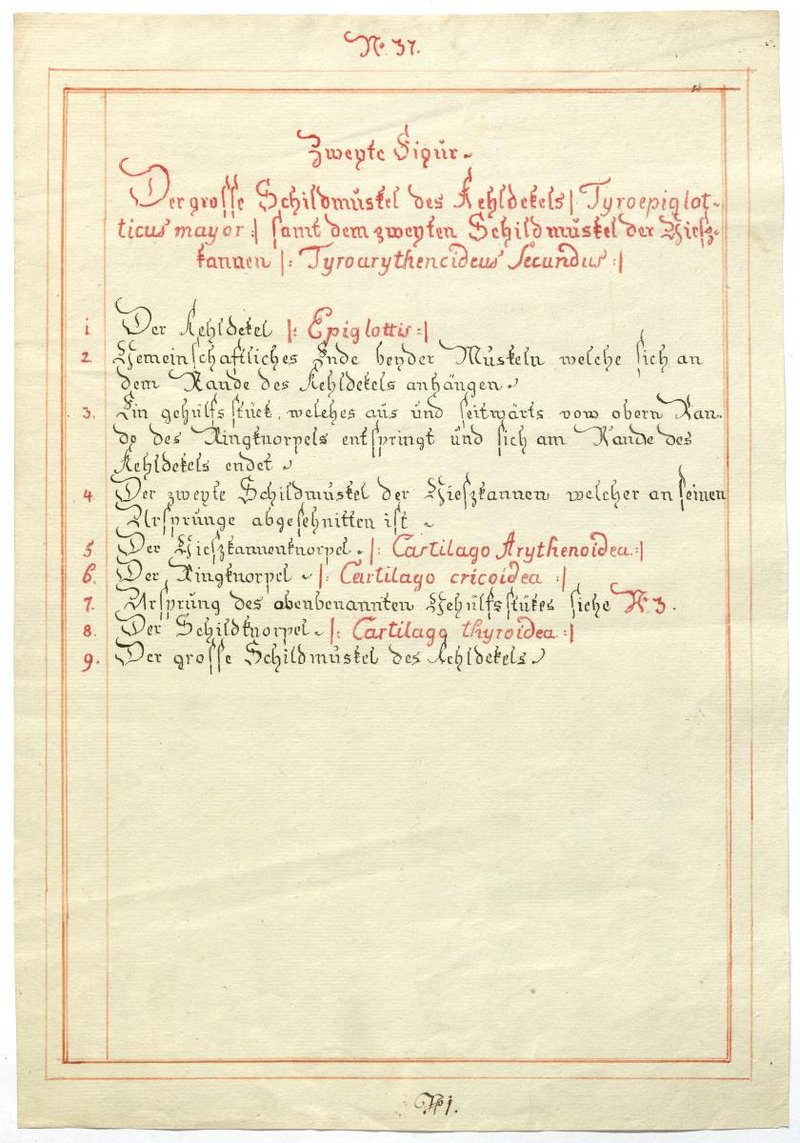 No. 37.
Zweyte Figur.
Der grosse Schildmuskel des Kehldekels |: Tyroepiglot-
ticus mayor :| samt dem zweyten Schildmuskel der Giesz-
kannen |: Tyroarythencideus Secundus :|
1 Der Kehldekel |: Epiglottis :|
2 Gemeinschaftliches Ende beyder Muskeln welche sich an
dem Rande des Kehldekels anhängen.
3. Ein gehülfsstück, welches aus und seitwärts vom obern Ran-
de des Ringknorpels entspringt und sich am Rande des
Kehldekels endet.
4. Der zweyte Schildmuskel der Gieszkannen welcher an seinen
Ursprunge abgeschnitten ist.
5. Der Gieszkannenknorpel. |: Cartilago Arythenoidea :|
6. Der Ringknorpel. |: Cartilago cricoidea :|
7. Ursprung des obenbenannten Gehülfsstükes siehe No. 3.
8. Der Schildknorpel. |: Cartilago thyroidea :|
9. Der grosse Schildmuskel des Kehldekels.